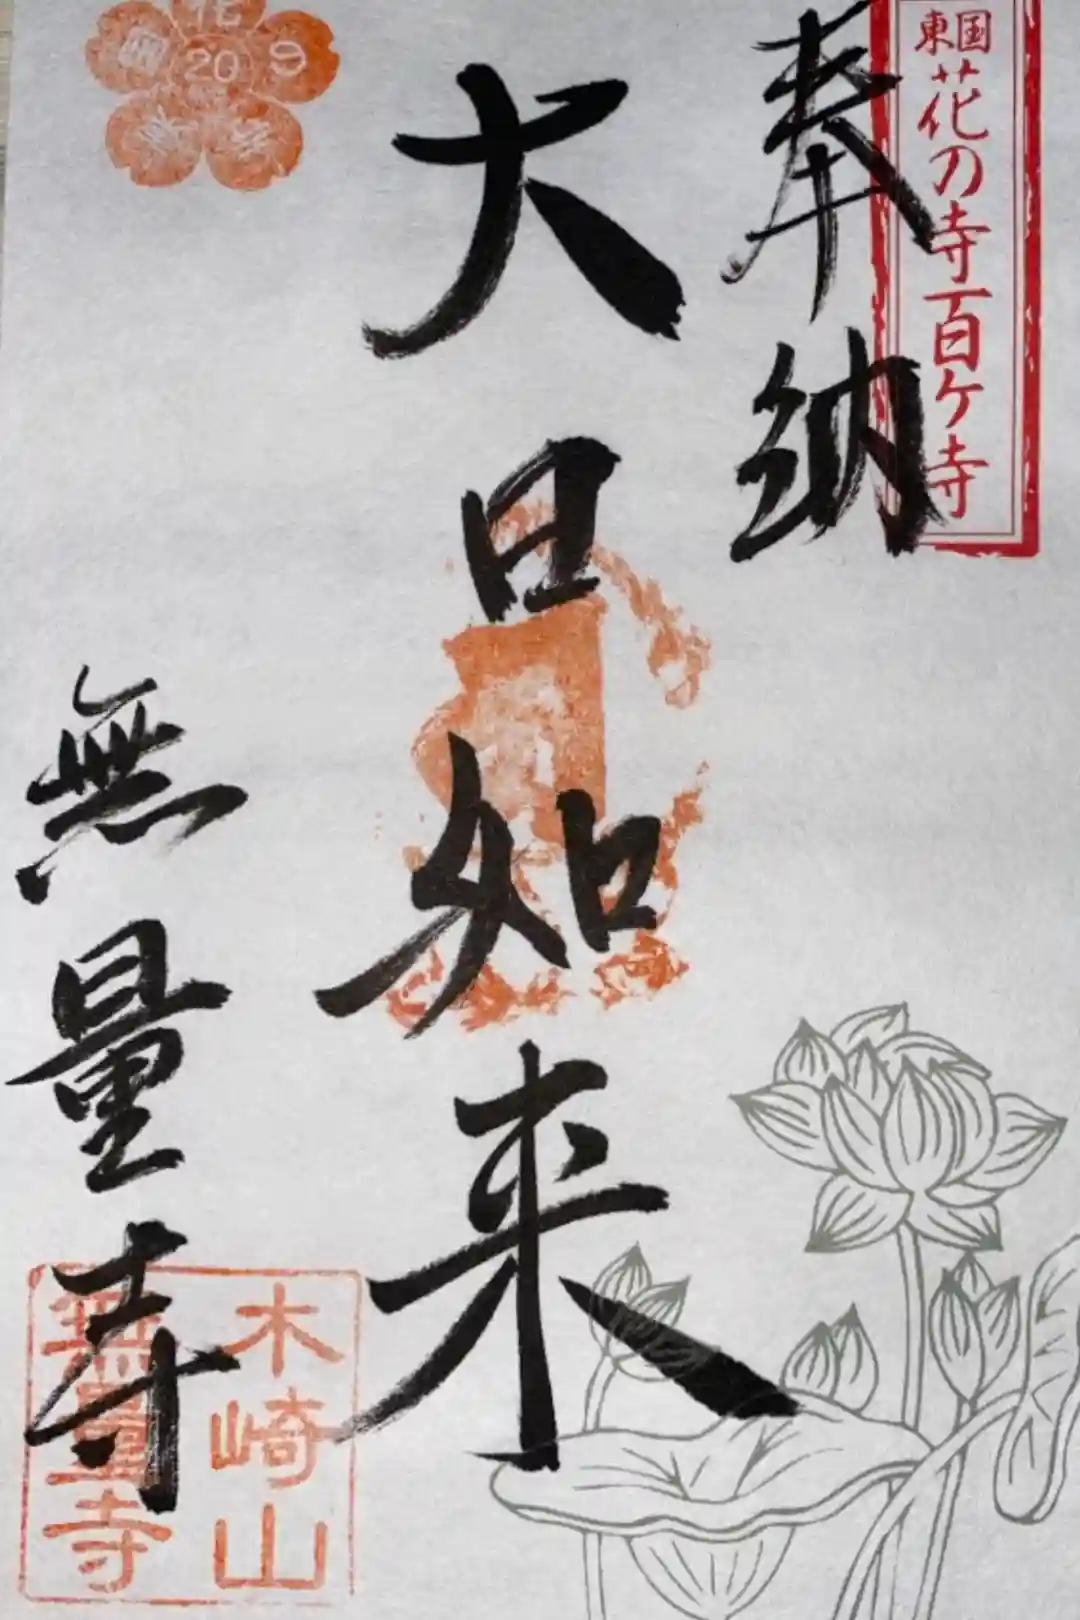 東国花の寺百ケ寺
奉納
大日如来
無量寺
木崎山
無量寺
花
20
9